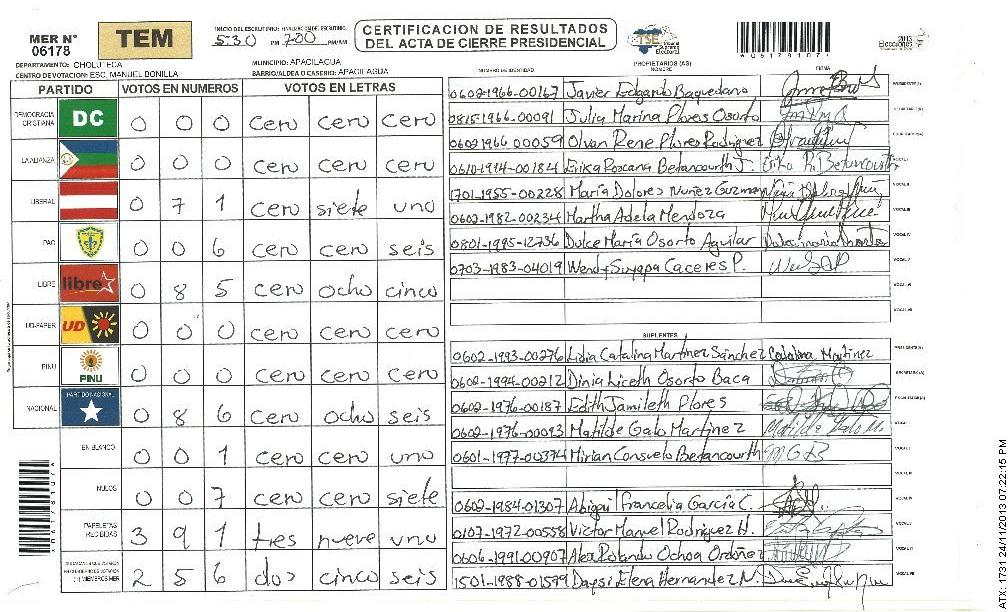 MER Nº 06178
TEM
INICIO DEL ESCRUTINIO: 5:30 PM 700 PM/AM
CERTIFICACION DE RESULTADOS
DEL ACTA DE CIERRE PRESIDENCIAL
TSE
2013
Elecciones
DEPARTAMENTO: CHOLUTECA
MUNICIPIO: APACILAGUA
CENTRO DE VOTACION: ESC. MANUEL BONILLA
BARRIO/ALDEA O CASERIO: APACILAGUA
PARTIDO VOTOS EN NUMEROS VOTOS EN LETRAS
DEMOCRACIA CRISTIANA DC 0 0 0 cero cero cero
LA ALIANZA 0 0 0 cero cero cero
LIBERAL 0 7 1 cero siete uno
PAC 0 0 6 cero cero seis
LIBRE libre 0 8 5 cero ocho cinco
UD-FAPER UD 0 0 0 cero cero cero
PINU PINU 0 0 0 cero cero cero
NACIONAL PARTIDO NACIONAL 0 8 6 cero ocho seis
EN BLANCO 0 0 1 cero cero uno
NULOS 0 0 7 cero cero siete
PAPELETAS RECIBIDAS 3 9 1 tres nueve uno
2 5 6 dos cinco seis
PROPIETARIOS (AS)
NUMERO DE IDENTIDAD NOMBRE FIRMA
0602-1966-00167 Javier Edgardo Baquedano
0815-1966-00091 Julia Marina Flores Osorto
0602-1966-00059 Olvan Rene Flores Rodriguez
0610-1994-00184 Erika Roxana Betancourth J. Erika R. Betancourth
1701-1955-00228 María Dolores Nuñez Guzman
0602-1982-00234 Martha Adela Mendoza
0801-1995-12736 Dulce María Osorto Aguilar
0703-1983-04019 Wendy Suyapa Caceres P.
SUPLENTES
0602-1993-00276 Lidia Catalina Martinez Sánchez Catalina Martinez
0602-1994-00212 Dinia Liceth Osorto Baca
0602-1976-00187 Edith Jamileth Flores
0602-1976-00093 Matilde Galo Martinez Matilde Galo M.
0601-1977-00374 Mirian Consuelo Betancourth MGB
0602-1984-01307 Abigail Francelia García C.
0107-1972-00558 Victor Manuel Rodriguez H.
0606-1991-00907 Alex Rolando Ochoa Ordoñez
1501-1988-01599 Daysi Elena Hernandez N.
ATX: 1731 24/11/2013 07:22:15 PM